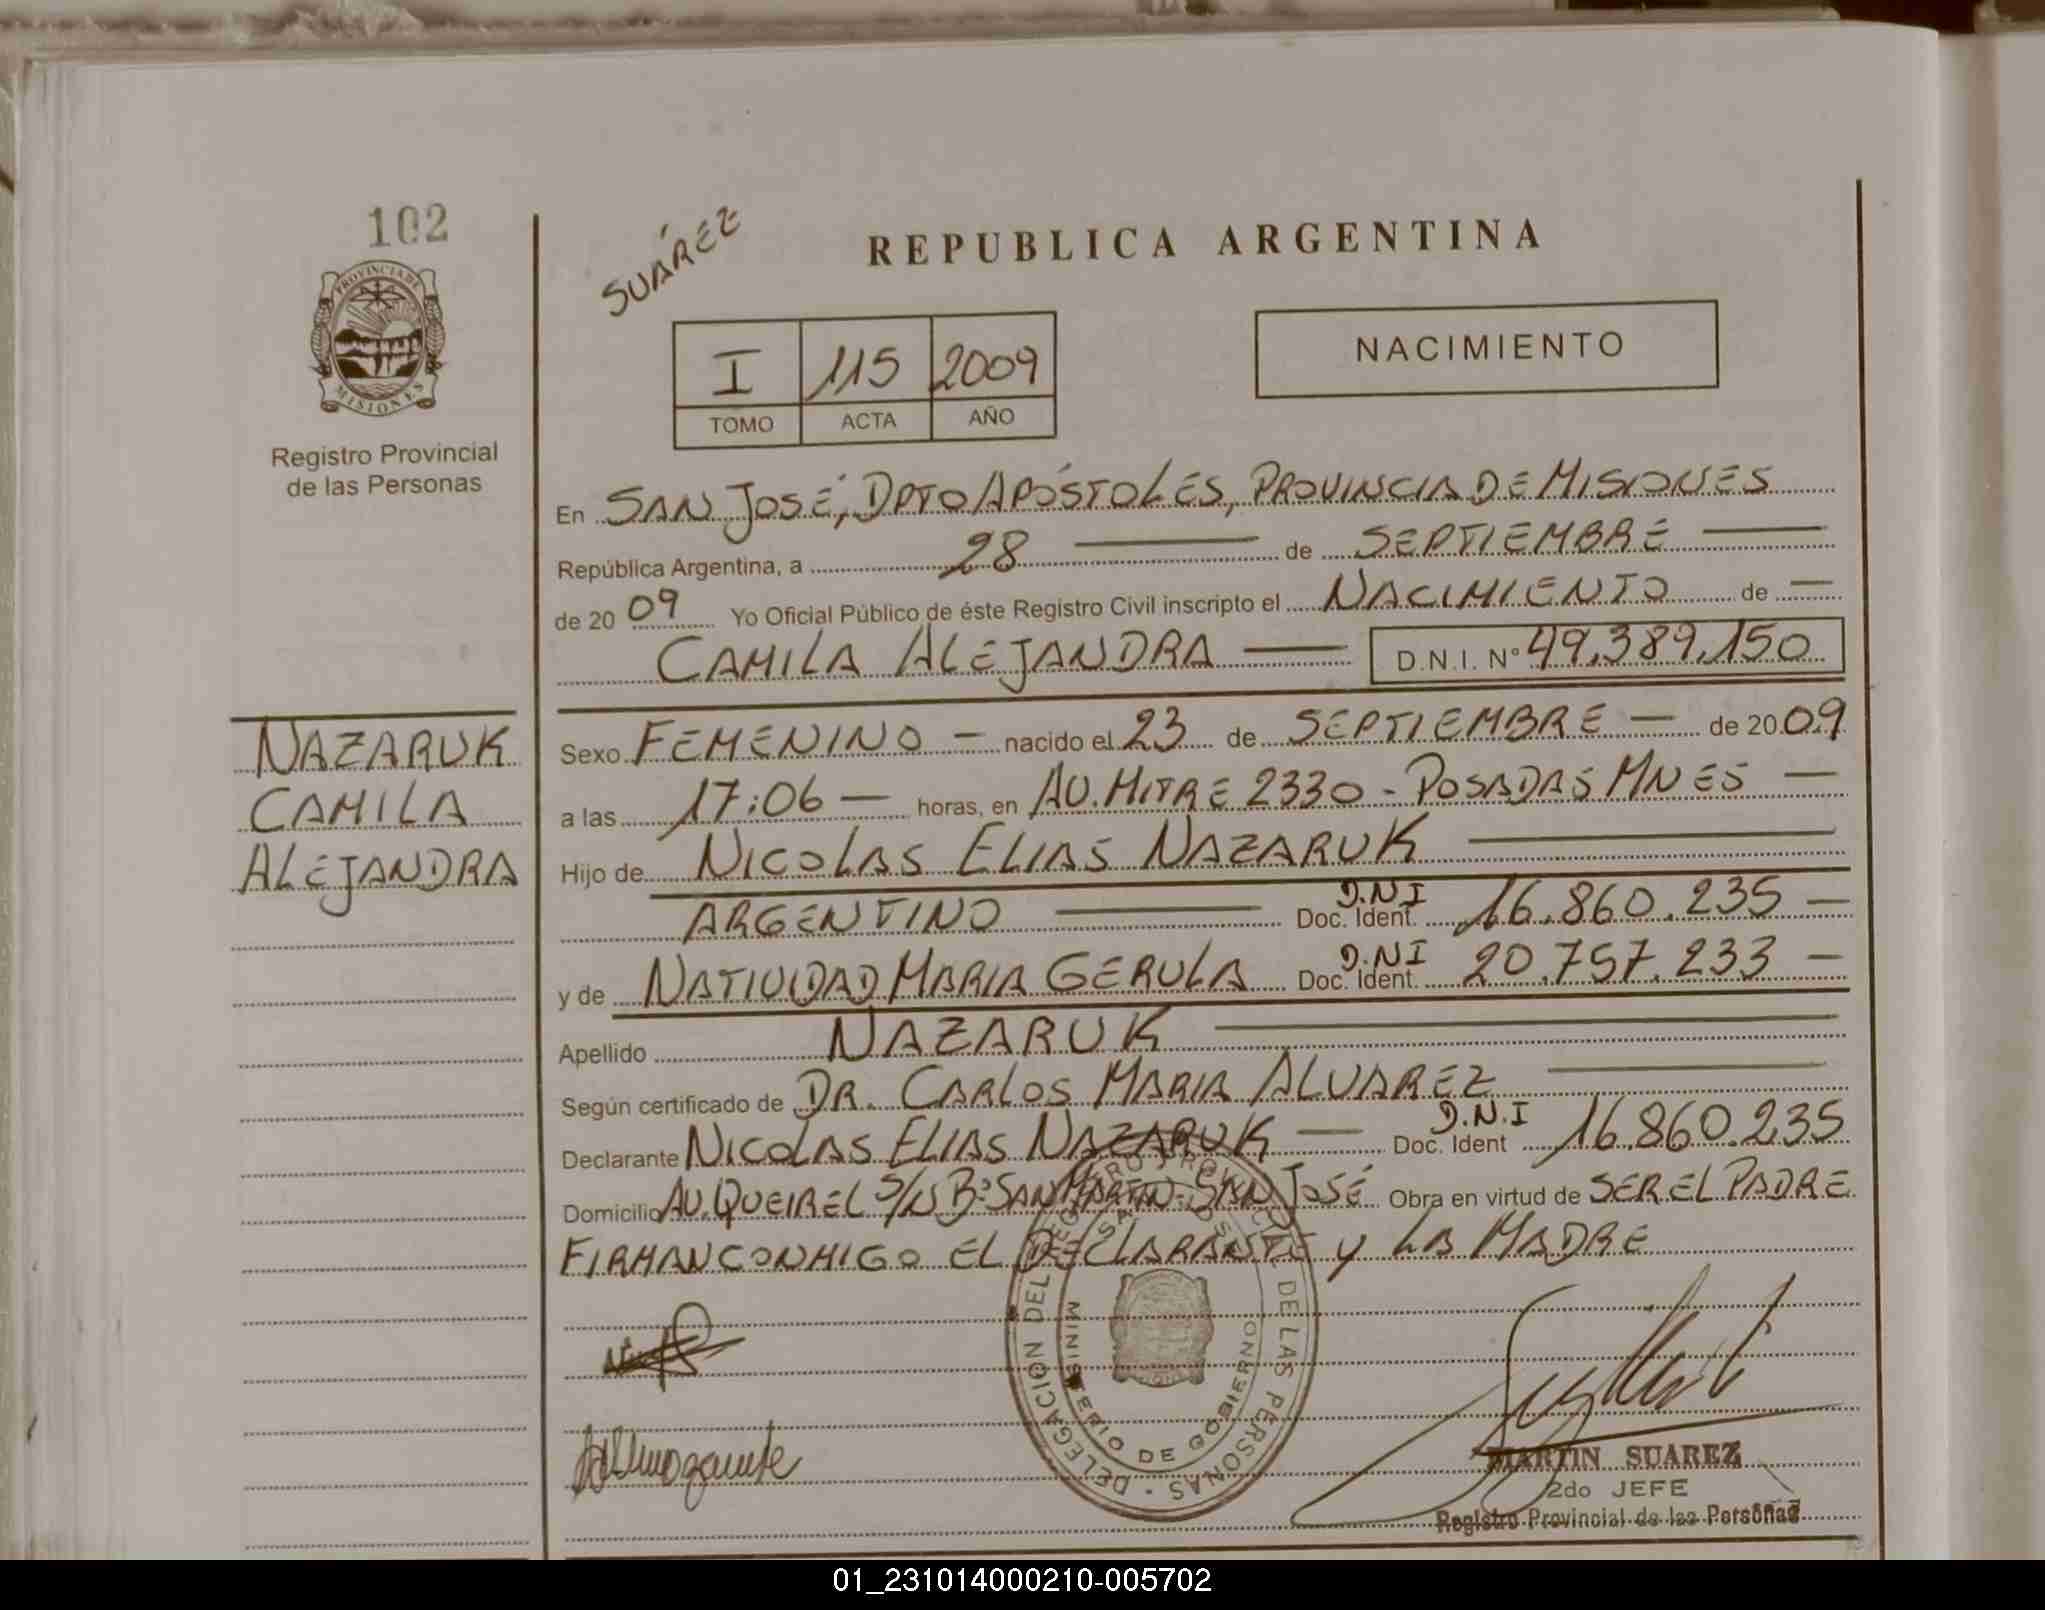 102
SUÁREZ
REPUBLICA ARGENTINA
PROVINCIA DE
MISIONES
Registro Provincial
de las Personas
I 115 2009
TOMO ACTA AÑO
NACIMIENTO
En SAN JOSÉ, DPTO APÓSTOLES, PROVINCIA DE MISIONES
República Argentina, a 28 — de SEPTIEMBRE —
de 20 09 Yo Oficial Público de éste Registro Civil inscripto el NACIMIENTO de —
CAMILA ALEJANDRA — D.N.I. N° 49.389.150
NAZARUK
CAMILA
ALEJANDRA
Sexo FEMENINO — nacido el 23 de SEPTIEMBRE — de 20 09
a las 17:06 — horas, en AV. MITRE 2330 - POSADAS MNES —
Hijo de NICOLAS ELIAS NAZARUK —
ARGENTINO — D.N.I Doc. Ident. 16.860.235 —
y de NATIVIDAD MARIA GERULA D.N.I Doc. Ident. 20.757.233 —
Apellido NAZARUK —
Según certificado de DR. CARLOS MARIA ALVAREZ —
Declarante NICOLAS ELIAS NAZARUK — D.N.I Doc. Ident 16.860.235
Domicilio AV. QUEIREL S/N B° SAN MARTIN - SAN JOSÉ Obra en virtud de SER EL PADRE
FIRMAN CONMIGO EL DECLARANTE Y LA MADRE
DELEGACION DEL REGISTRO PROVINCIAL DE LAS PERSONAS
SAN JOSE
MINISTERIO DE GOBIERNO
MARTIN SUAREZ
2do JEFE
Registro Provincial de las Personas
01_231014000210-005702